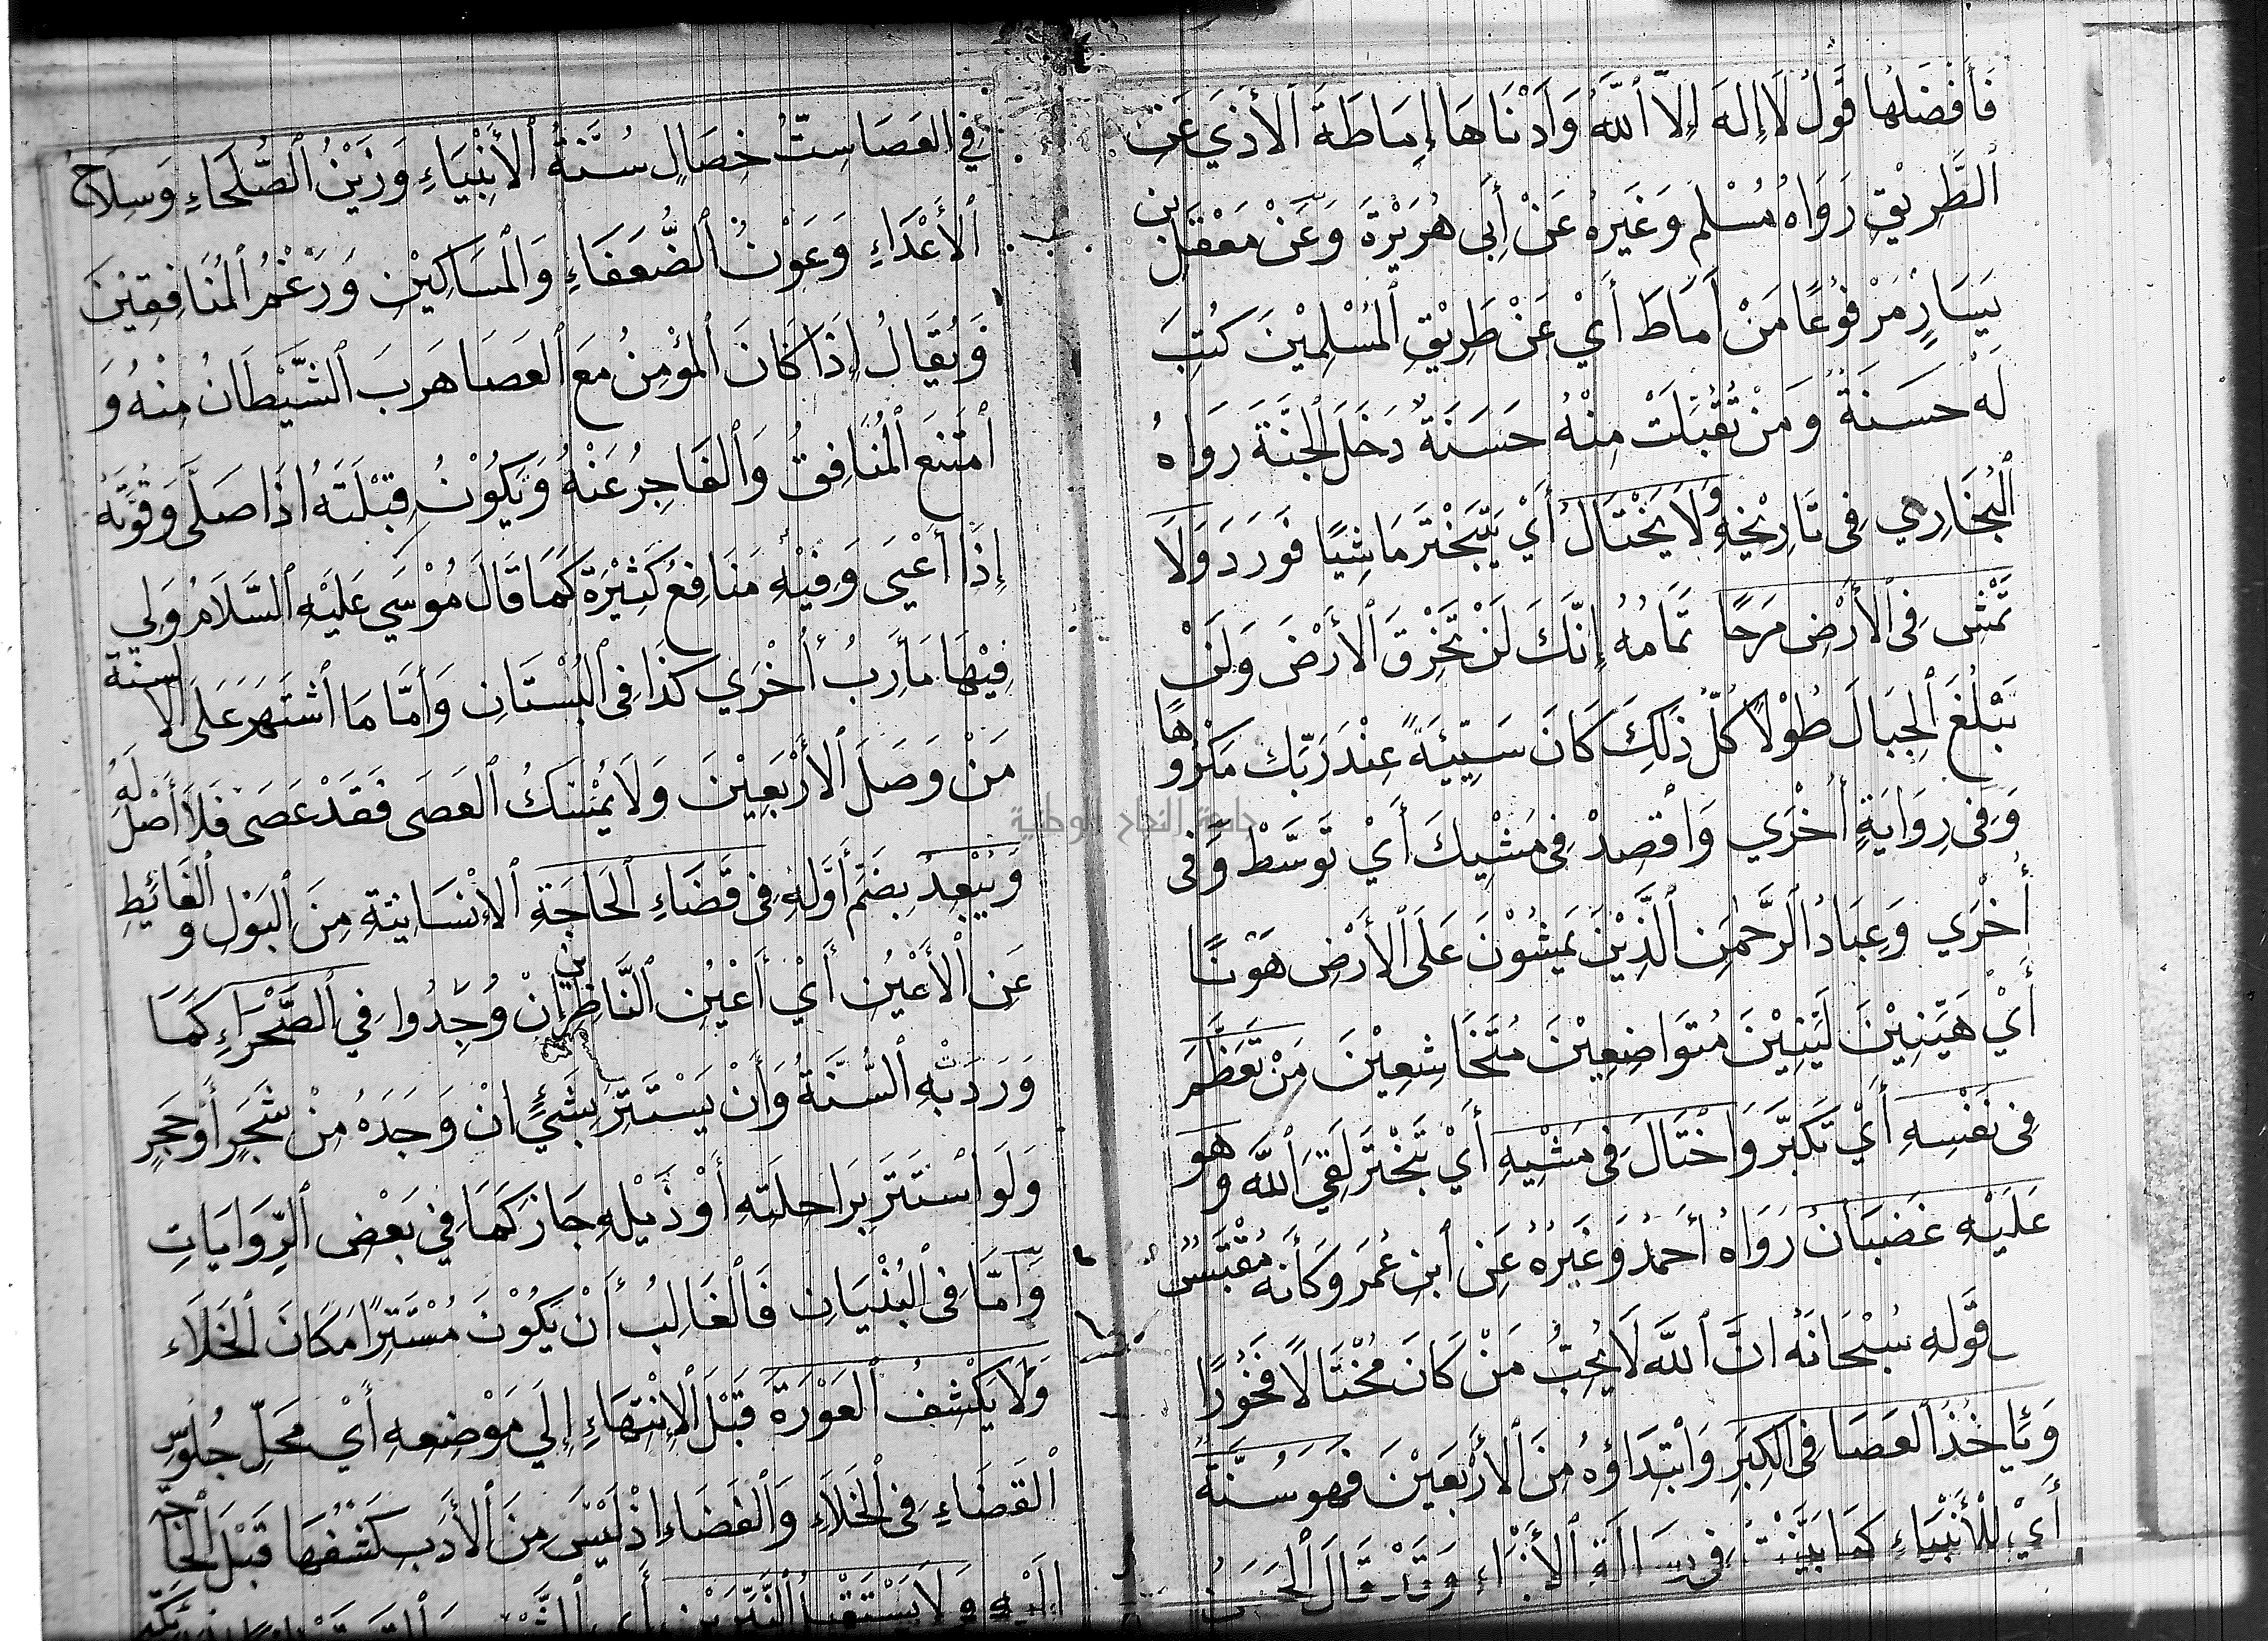 فَأَفْضَلُهَا قَوْلُ لَا إِلهَ إِلَّا اللَّهُ وَأَدْنَاهَا إِمَاطَةَ الْأَذَي عَنِ
الطَّرِيْقِ رَوَاهُ مُسْلِم وَغَيرُهُ عَنْ أَبِى هُرَيْرَةَ وَعَنْ مَعْقَل بن
يَسَارٍ مَرْفُوْعًا مَنْ أَمَاطَ أَيْ عَنْ طَرِيْقِ الْمُسْلِمِيْنَ كُتِبَ
لَه حَسَنَةٌ وَمَنْ تُقُبِّلَتْ مِنْهُ حَسَنَةٌ دَخَلَ الجَنَّةَ رَوَاهُ
الْبُخَارِي فِى تَارِيْخِهِ وَلَا يَخْتَالُ أَيْ يَتَبَخْتَر مَاشِيًا فَوَرَدَ وَلَا
تَمْشِ فِى الْأَرْضِ مَرَحًا تَمَامُهُ إِنَّكَ لَنْ تَخْرِقَ الْأَرْضَ وَلَنْ
تَبْلُغَ الْجِبَالَ طُوْلًا كُلُّ ذَلِكَ كَانَ سَيِّئَةً عِنْدَ رَبِّكَ مَكْرُوهًا
وَفِى رِوَايَةٍ أُخْرَي وَاقْصِدْ فِى مَشْيِكَ أَيْ تَوَسَّطْ وَفى
أُخْرَي وَعِبَادُ الرَّحْمَنِ الَّذِيْنَ يَمْشُوْنَ عَلَى الْأَرْضِ هَوْنًا
أَيْ هَيِّنِيْنَ لَيِّنِيْنَ مُتَوَاضِعِيْنَ مُتَخَاشِعِيْنَ مَنْ تَعَظَّمَ
فِى نَفْسِهِ أَيْ تَكَبَّرَ وَاخْتَالَ فِى مَشْيِهِ أَيْ تَبَخْتَرَ لَقِيَ اللَّه وَهو
عَلَيْهِ غَضْبَانُ رَوَاهُ أَحْمَدُ وَغَيرُهُ عَنِ ابنِ عُمَرَ وَكَأَنَّهُ مُقْتَبَسٌ
قَوْلِهِ سُبْحَانَهُ انَّ اللَّهَ لَا يُحِبُّ مَنْ كَانَ مُخْتَالًا فَخُوْرًا
وَيَأْخُذُ الْعَصَا فِى الْكِبَرِ وَابْتِدَاؤهُ مِنَ الْأَرْبَعِيْنَ فَهوَ سُنَّةٌ
أَيْ لِلْأَنْبِيَاءِ كَمَا بَيَّنْتُ فِى رِسَالَةِ الْأَنْبِيَاء وَقَدْ قَالَ الْحَسَنُ
فِي العَصَا سِتُّ خِصَالٍ سُنَّةُ الْأَنْبِيَاءِ وَزَيْنُ الصُّلَحَاءِ وَسِلَاحُ
الْأَعْدَاءِ وَعَوْنُ الضُّعَفَاءِ وَالْمَسَاكِيْنِ وَرَغْمُ الْمُنَافِقِيْنَ
وَيُقَالُ إِذَا كَانَ الْمُؤْمِنُ مَعَ الْعَصَا هَربَ الشَّيْطَانُ مِنْهُ وَ
امْتَنَعَ الْمُنَافِقُ وَالْفَاجِرُ عَنْهُ وَيَكُوْنُ قِبْلَتَهُ اذَا صَلَّى وَقُوَّتهُ
إِذَا أَعْيَى وَفِيْهِ مَنَافِعُ كَثِيْرَةٌ كَمَا قَالَ مُوْسَي عَلَيْهِ السَّلَامُ وَلِي
فِيْهَا مَأَرِبُ أُخْرَي كَذَا فِى الْبُسْتَانِ وَأَمَّا مَا اشْتَهَرَ عَلَى الْالسنة
مَنْ وَصَلَ الْأَرْبَعِيْنَ وَلَا يُمْسِكُ الْعَصَى فَقَدْ عَصَى فَلَا أَصْلَ لَهُ
وَيُبْعِدُ بِضَمِّ أَوَّلِهِ فِى قَضَاءِ الْحَاجَةِ الْإِنْسَانِيَّةِ مِنَ الْبَوْلِ وَالْغَائِطِ
عَنِ الْأَعْيُنِ أَيْ أَعْيُنِ النَّاظِرِينَ انْ وُجِدُوا فِي الصَّحْرَاءِ كَمَا
وَرَدَتْ بِهِ السُّنَّةُ وَأَنْ يَسْتَتِرَ بِشَيْءٍ انْ وَجَدَهُ مِنْ شَجَرٍ أَوْ حَجَرٍ
وَلَو اسْتَتَرَ بِرَاحِلَتِهِ أَوْ ذَيْلِهِ جَازَ كَمَا فِي بَعْضِ الرِّوَايَاتِ
وَأَمَّا فِى الْبُنْيَانِ فَالْغَالِبُ أَنْ يَكُوْنَ مُسْتَتِرًا مَكَانَ الْخَلَاء
وَلَا يَكْشِفُ الْعَوْرَةَ قَبْلَ الْإِنْتِهَاءِ إِلَي مَوْضِعِهِ أَيْ مَحَلِّ جُلُوْسِ
الْقَضَاءِ فِى الْخَلَاءِ وَالْفَضَاءِ اذْ لَيْسَ مِنَ الْأَدَبِ كَشْفُهَا قَبْلَ الْحَاجَة
الَيْهِ وَلَا يَسْتَقْبِلُ النَّيِّرَيْنِ أَي الشَّمْسَ
جامعة النجاح الوطنية